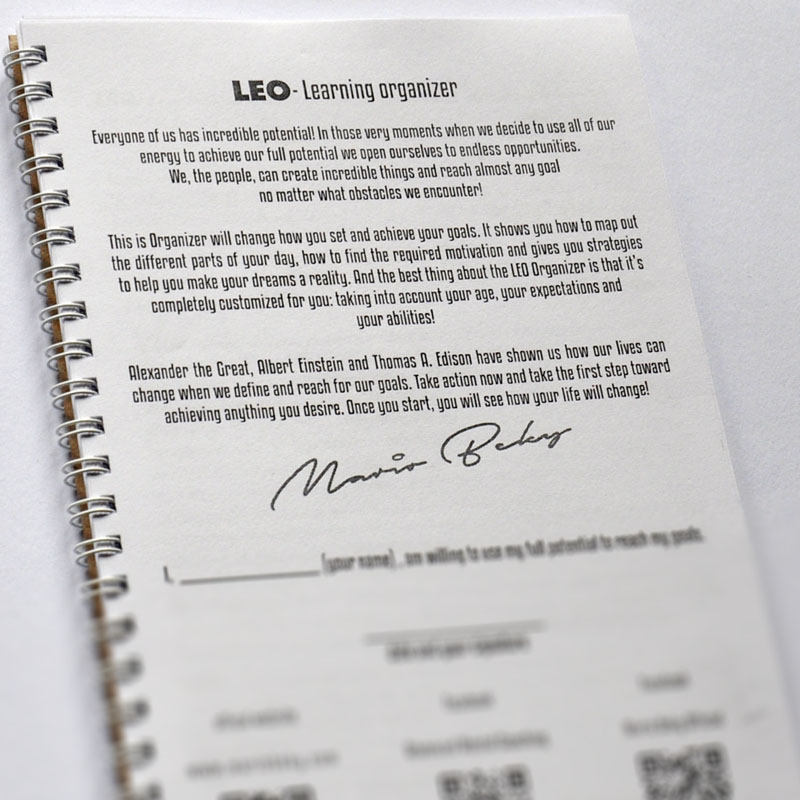 LEO- Learning organizer
Everyone of us has incredible potential! In those very moments when we decide to use all of our
energy to achieve our full potential we open ourselves to endless opportunities.
We, the people, can create incredible things and reach almost any goal
no matter what obstacles we encounter!
This is Organizer will change how you set and achieve your goals. It shows you how to map out
the different parts of your day, how to find the required motivation and gives you strategies
to help you make your dreams a reality. And the best thing about the LEO Organizer is that it's
completely customized for you: taking into account your age, your expectations and
your abilities!
Alexander the Great, Albert Einstein and Thomas A. Edison have shown us how our lives can
change when we define and reach for our goals. Take action now and take the first step toward
achieving anything you desire. Once you start, you will see how your life will change!
Mario Beky
I, ____________ (your name), am willing to use my full potential to reach my goals.